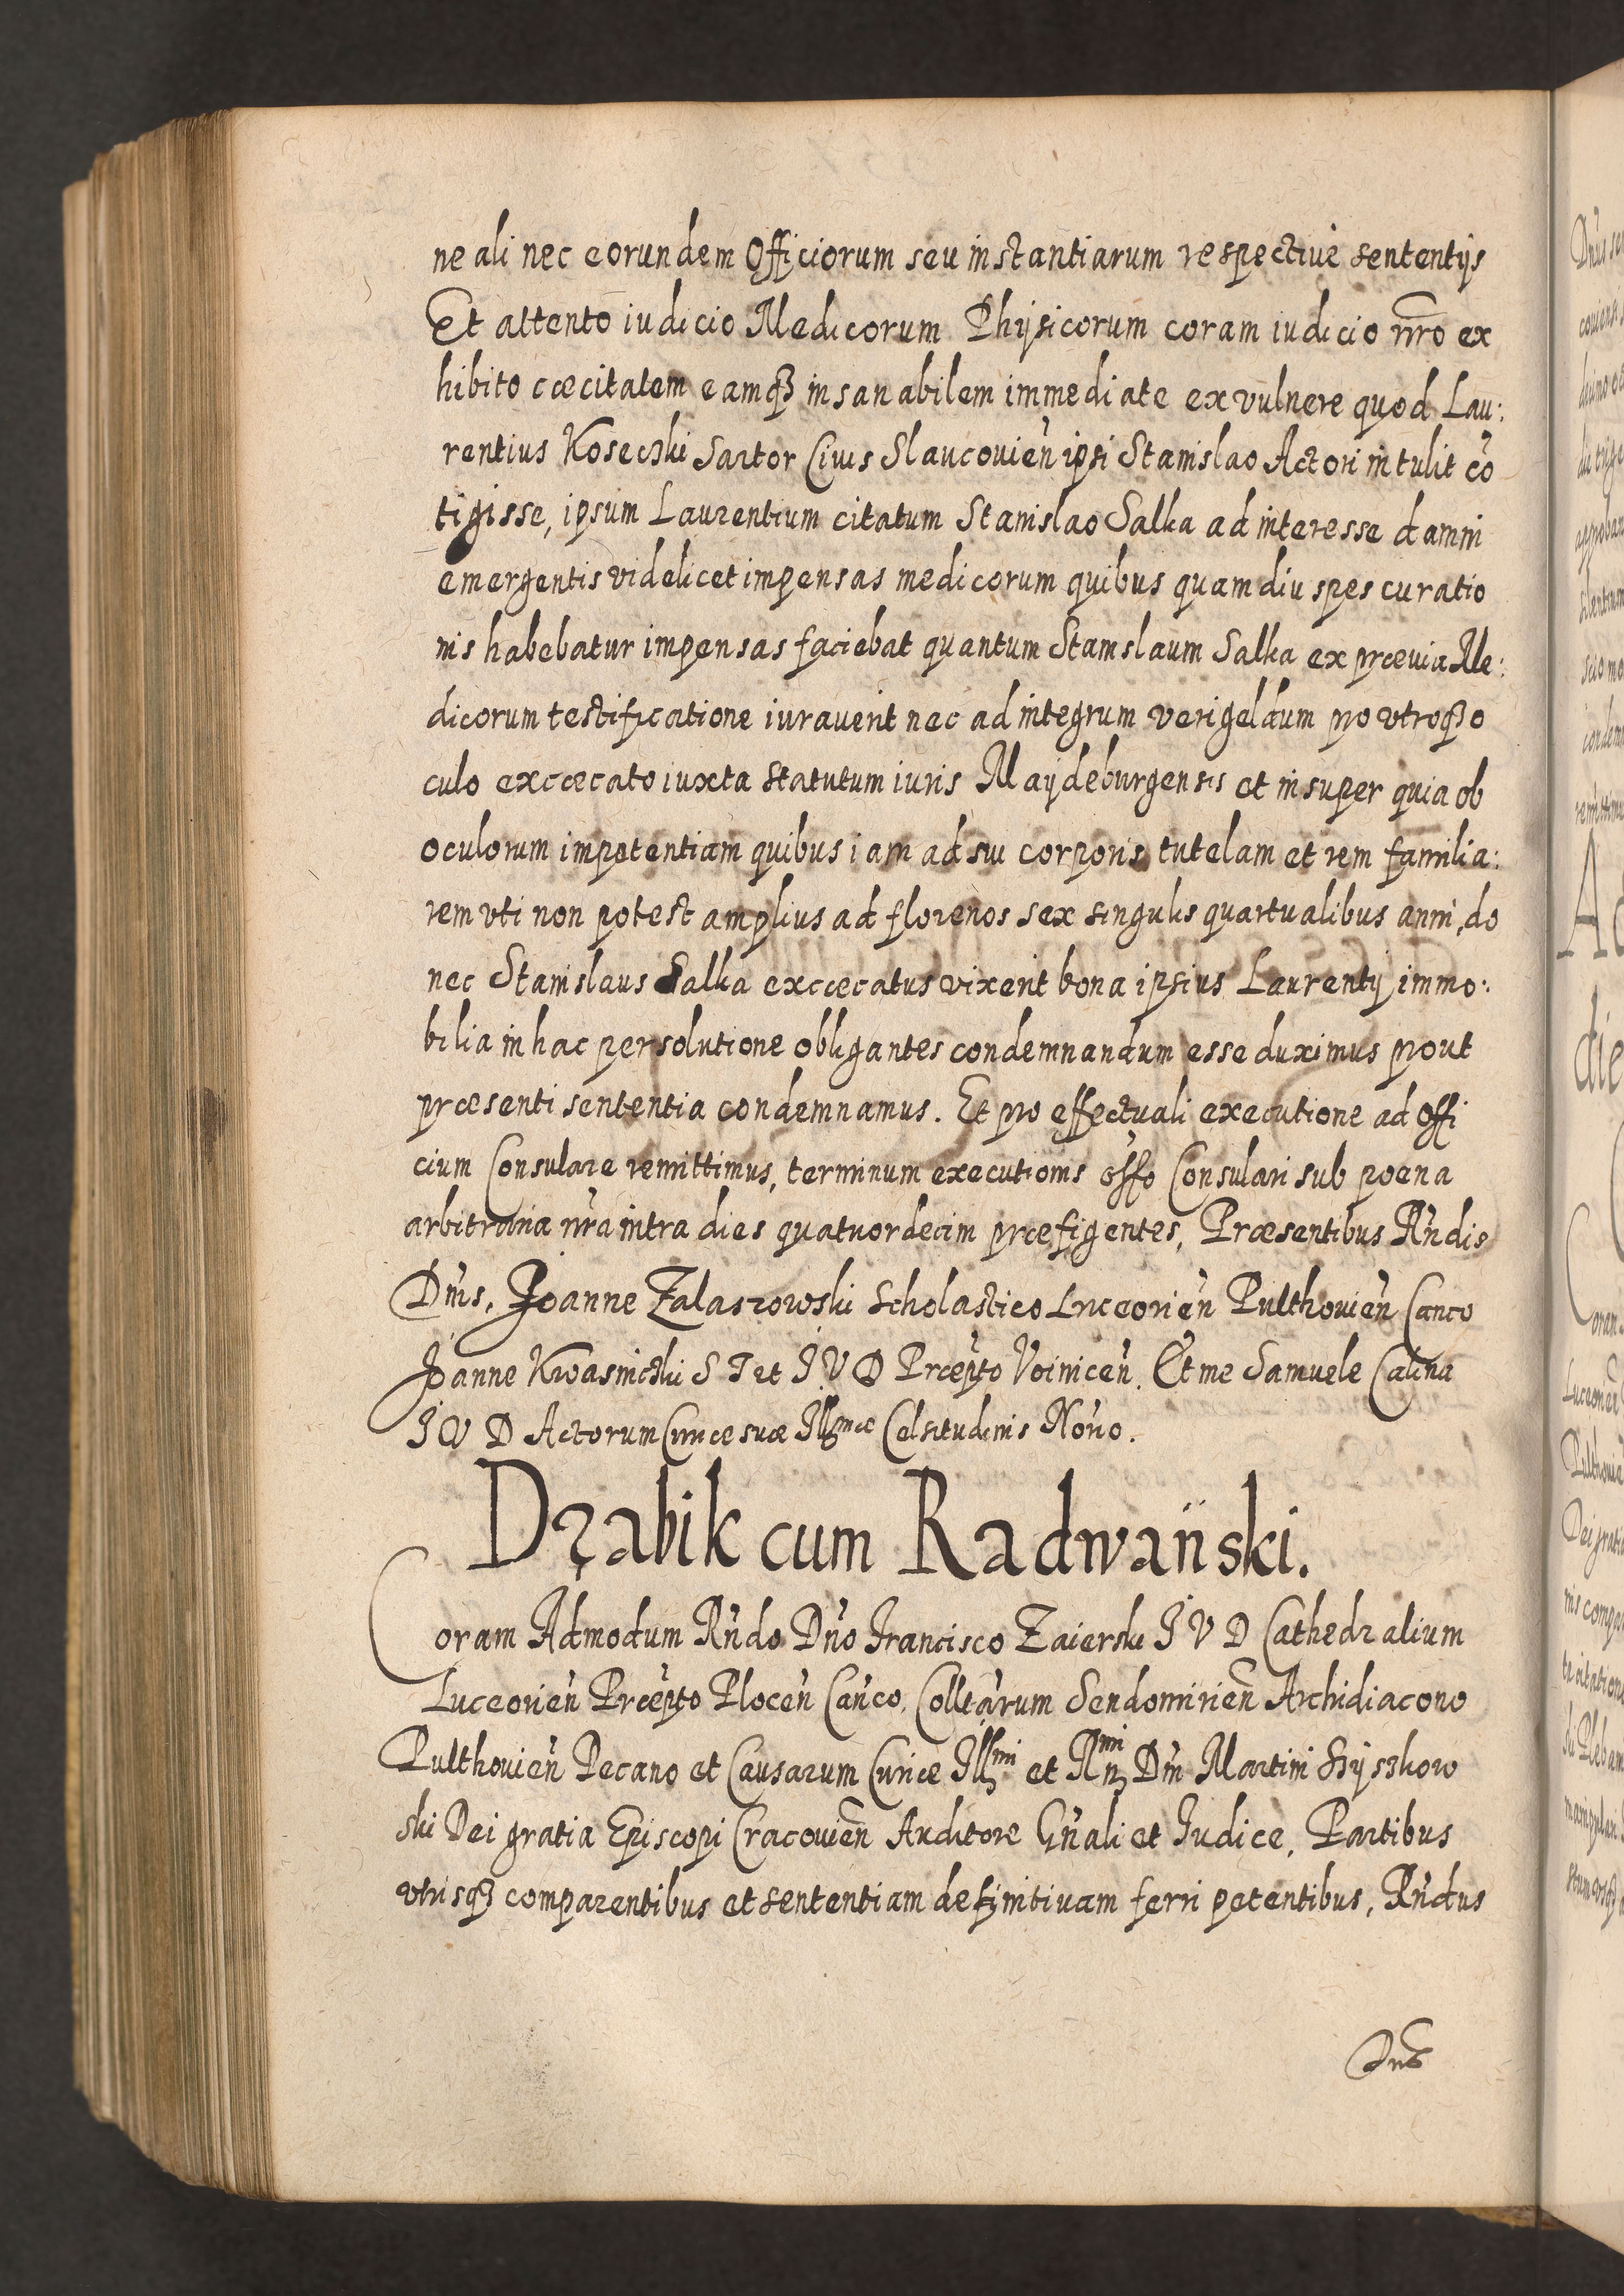 ne ali nec eorundem Officiorum seu instantiarum respectiuè sententijs
Et attento iudicio Medicorum Physicorum coram iudicio nr̃o ex
hibito cæcitatem eamqꝫ insanabilem immediate ex vulnere quod Lau:
rentius Koseczki Sartor Ciuis Slaucouien̄ ipsi Stanislao Actori intulit cō
tigisse, ipsum Laurentium citatum Stanislao Salka ad interesse damni
emergentis videlicet impensas medicorum quibus quamdiu spes curatio
nis habebatur impensas faciebat quantum Stanislaum Salka ex præuia Me:
dicorum testificatione iurauerit nec ad integrum verigeldum pro vtroqꝫ o
culo excæcato iuxta statutum iuris Maydeburgensis et insuper quia ob
oculorum impotentiam quibus iam ad sui corporis tutelam et rem familia:
rem vti non potest amplius ad florenos sex singulis quartualibus anni, do
nec Stanislaus Salka excæcatus vixerit bona ipsius Laurentij immo:
bilia in hac persolutione obligantes condemnandum esse duximus prout
præsenti sententia condemnamus. Et pro effectuali executione ad offi
cium Consulare remittimus, terminum executionis offo Consulari sub poena
arbitraria nr̃a intra dies quatuordecim præfigentes, Præsentibus Rn̄dis
Dn̄is, Joanne Zalaszowski Scholastico Luceorien̄ Pulthouien̄ Canco
Joanne Kwasniczki S T et J V D Præp̄to Voinicen̄. Et me Samuele Calina
J V D Actorum Curiæ suæ Illmæ Celsitudinis No̅rio.
Drabik cum Radwański.
Coram Admodum Rn̄do Dn̄o Francisco Zaierski J V D Cathedralium
Luceorien̄ Præp̄to Plocen̄ Can̄co, Collt̄arum Sendomirien̄ Archidiacono
Pulthouien̄ Decano et Causarum Curiæ Illmi et Rn̄mi Dn̄i Martini Szyszkow
ski Dei gratia Episcopi Cracouien̄ Auditore Gn̄ali et Judice, Partibus
vtrisqꝫ comparentibus et sententiam definitiuam ferri petentibus, Rn̄dus
Dn̄s